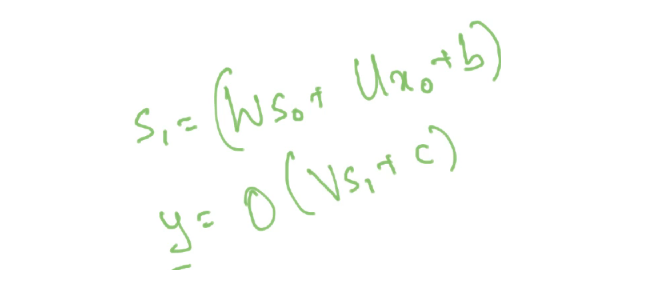 S₁ = (WS₀ + Ux₀ + b)
y = O(VS₁ + c)